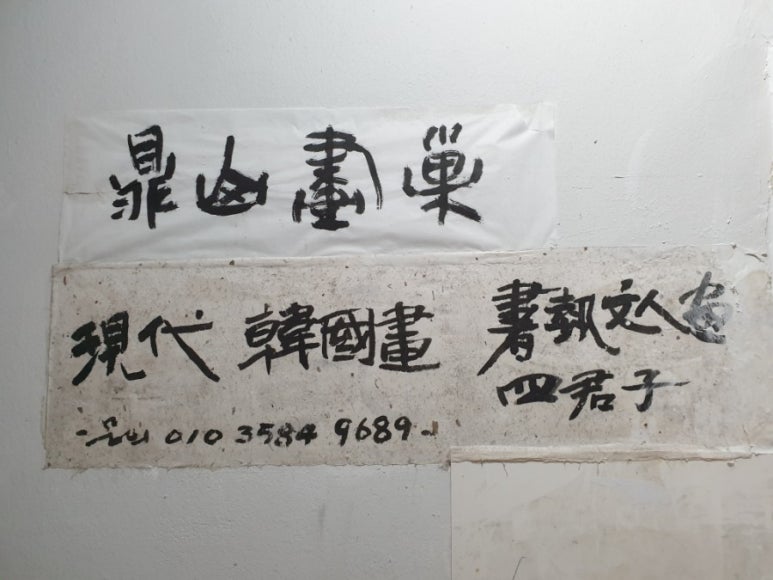 鼎山畵巢
現代 韓國畫 書執文人畫
四君子
010 3584 9689